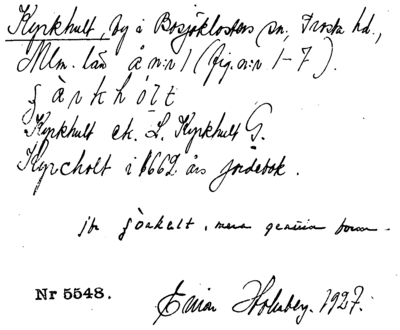 Kyrkhult, by i Bosjöklosters sn, Frosta hd.,
Mlm. län å n:r 1 (fig. n:r 1-7).
Kyrkhult ek. L. Kyrkhult G.
Kyrcholt i 1662 års jordebok.
jfr mera genuina
Nr 5548.
Einar Holmberg. 1927.